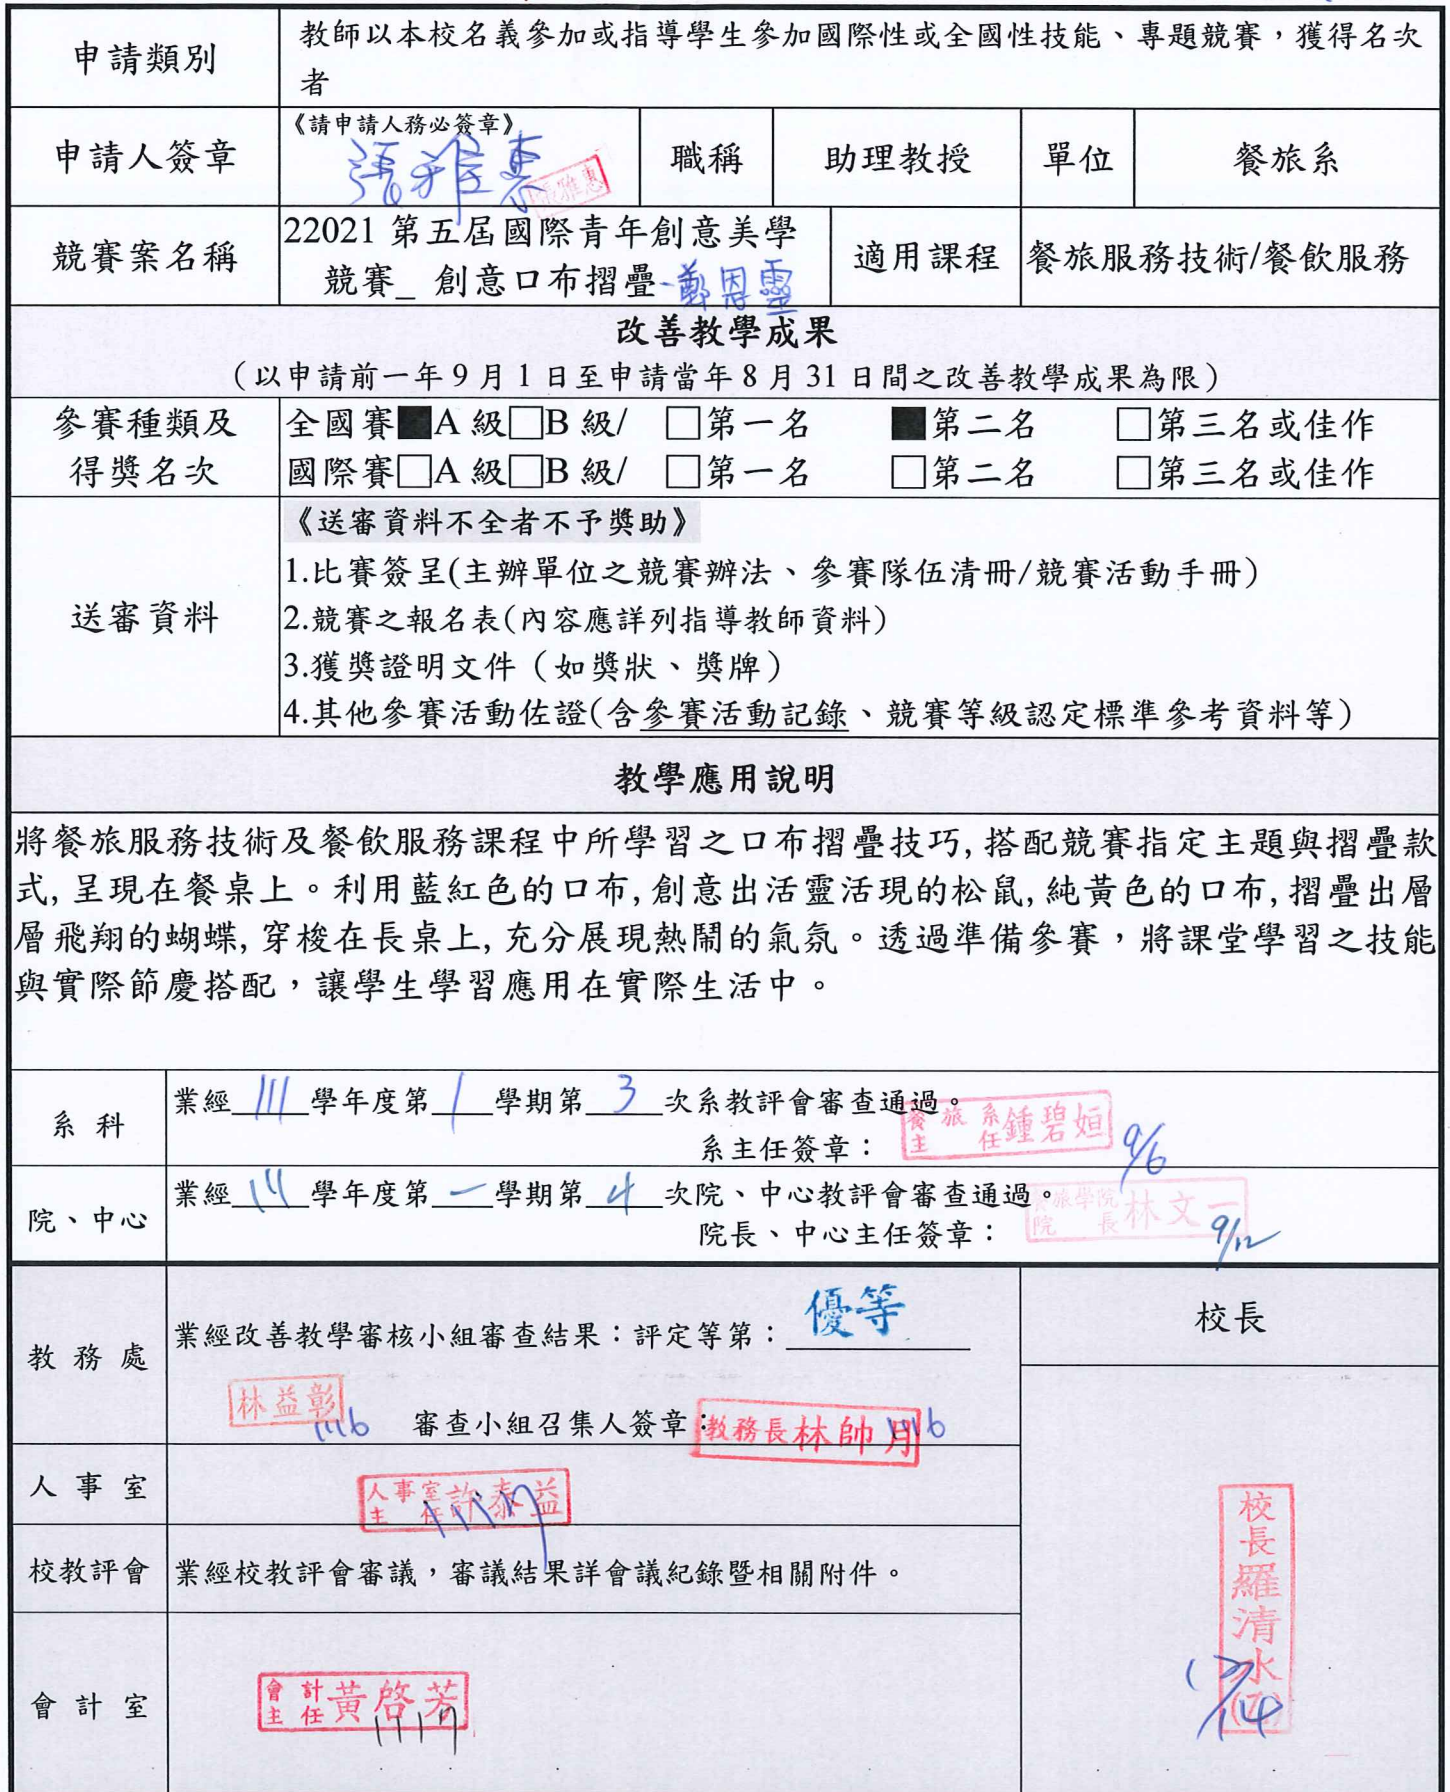 申請類別
教師以本校名義參加或指導學生參加國際性或全國性技能、專題競賽，獲得名次
者
申請人簽章
《請申請人務必簽章》
張雅惠
張雅惠
職稱
助理教授
單位
餐旅系
競賽案名稱
22021 第五屆國際青年創意美學
競賽_ 創意口布摺疊-鄭恩靈
適用課程
餐旅服務技術/餐飲服務
改善教學成果
（以申請前一年 9 月 1 日至申請當年 8 月 31 日間之改善教學成果為限）
參賽種類及
得獎名次
全國賽■A 級□B 級/ □第一名 ■第二名 □第三名或佳作
國際賽□A 級□B 級/ □第一名 □第二名 □第三名或佳作
送審資料
《送審資料不全者不予獎助》
1.比賽簽呈(主辦單位之競賽辦法、參賽隊伍清冊/競賽活動手冊）
2.競賽之報名表(內容應詳列指導教師資料）
3.獲獎證明文件（如獎狀、獎牌）
4.其他參賽活動佐證(含參賽活動記錄、競賽等級認定標準參考資料等）
教學應用說明
將餐旅服務技術及餐飲服務課程中所學習之口布摺疊技巧, 搭配競賽指定主題與摺疊款
式, 呈現在餐桌上。利用藍紅色的口布, 創意出活靈活現的松鼠, 純黃色的口布, 摺疊出層
層飛翔的蝴蝶, 穿梭在長桌上, 充分展現熱鬧的氣氛。透過準備參賽，將課堂學習之技能
與實際節慶搭配，讓學生學習應用在實際生活中。
系科
業經 111 學年度第 1 學期第 3 次系教評會審查通過。
系主任簽章：
餐旅系主任鍾碧姮
9/6
院、中心
業經 111 學年度第 一 學期第 4 次院、中心教評會審查通過。
院長、中心主任簽章：
餐旅學院院長林文一
9/12
教務處
業經改善教學審核小組審查結果：評定等第：優等
林益彰
1116
審查小組召集人簽章：
教務長林帥月
1116
校長
人事室
人事室主任許泰益
1117
校教評會
業經校教評會審議，審議結果詳會議紀錄暨相關附件。
會計室
會計主任黃啓芳
1117
校長羅清水(乙)